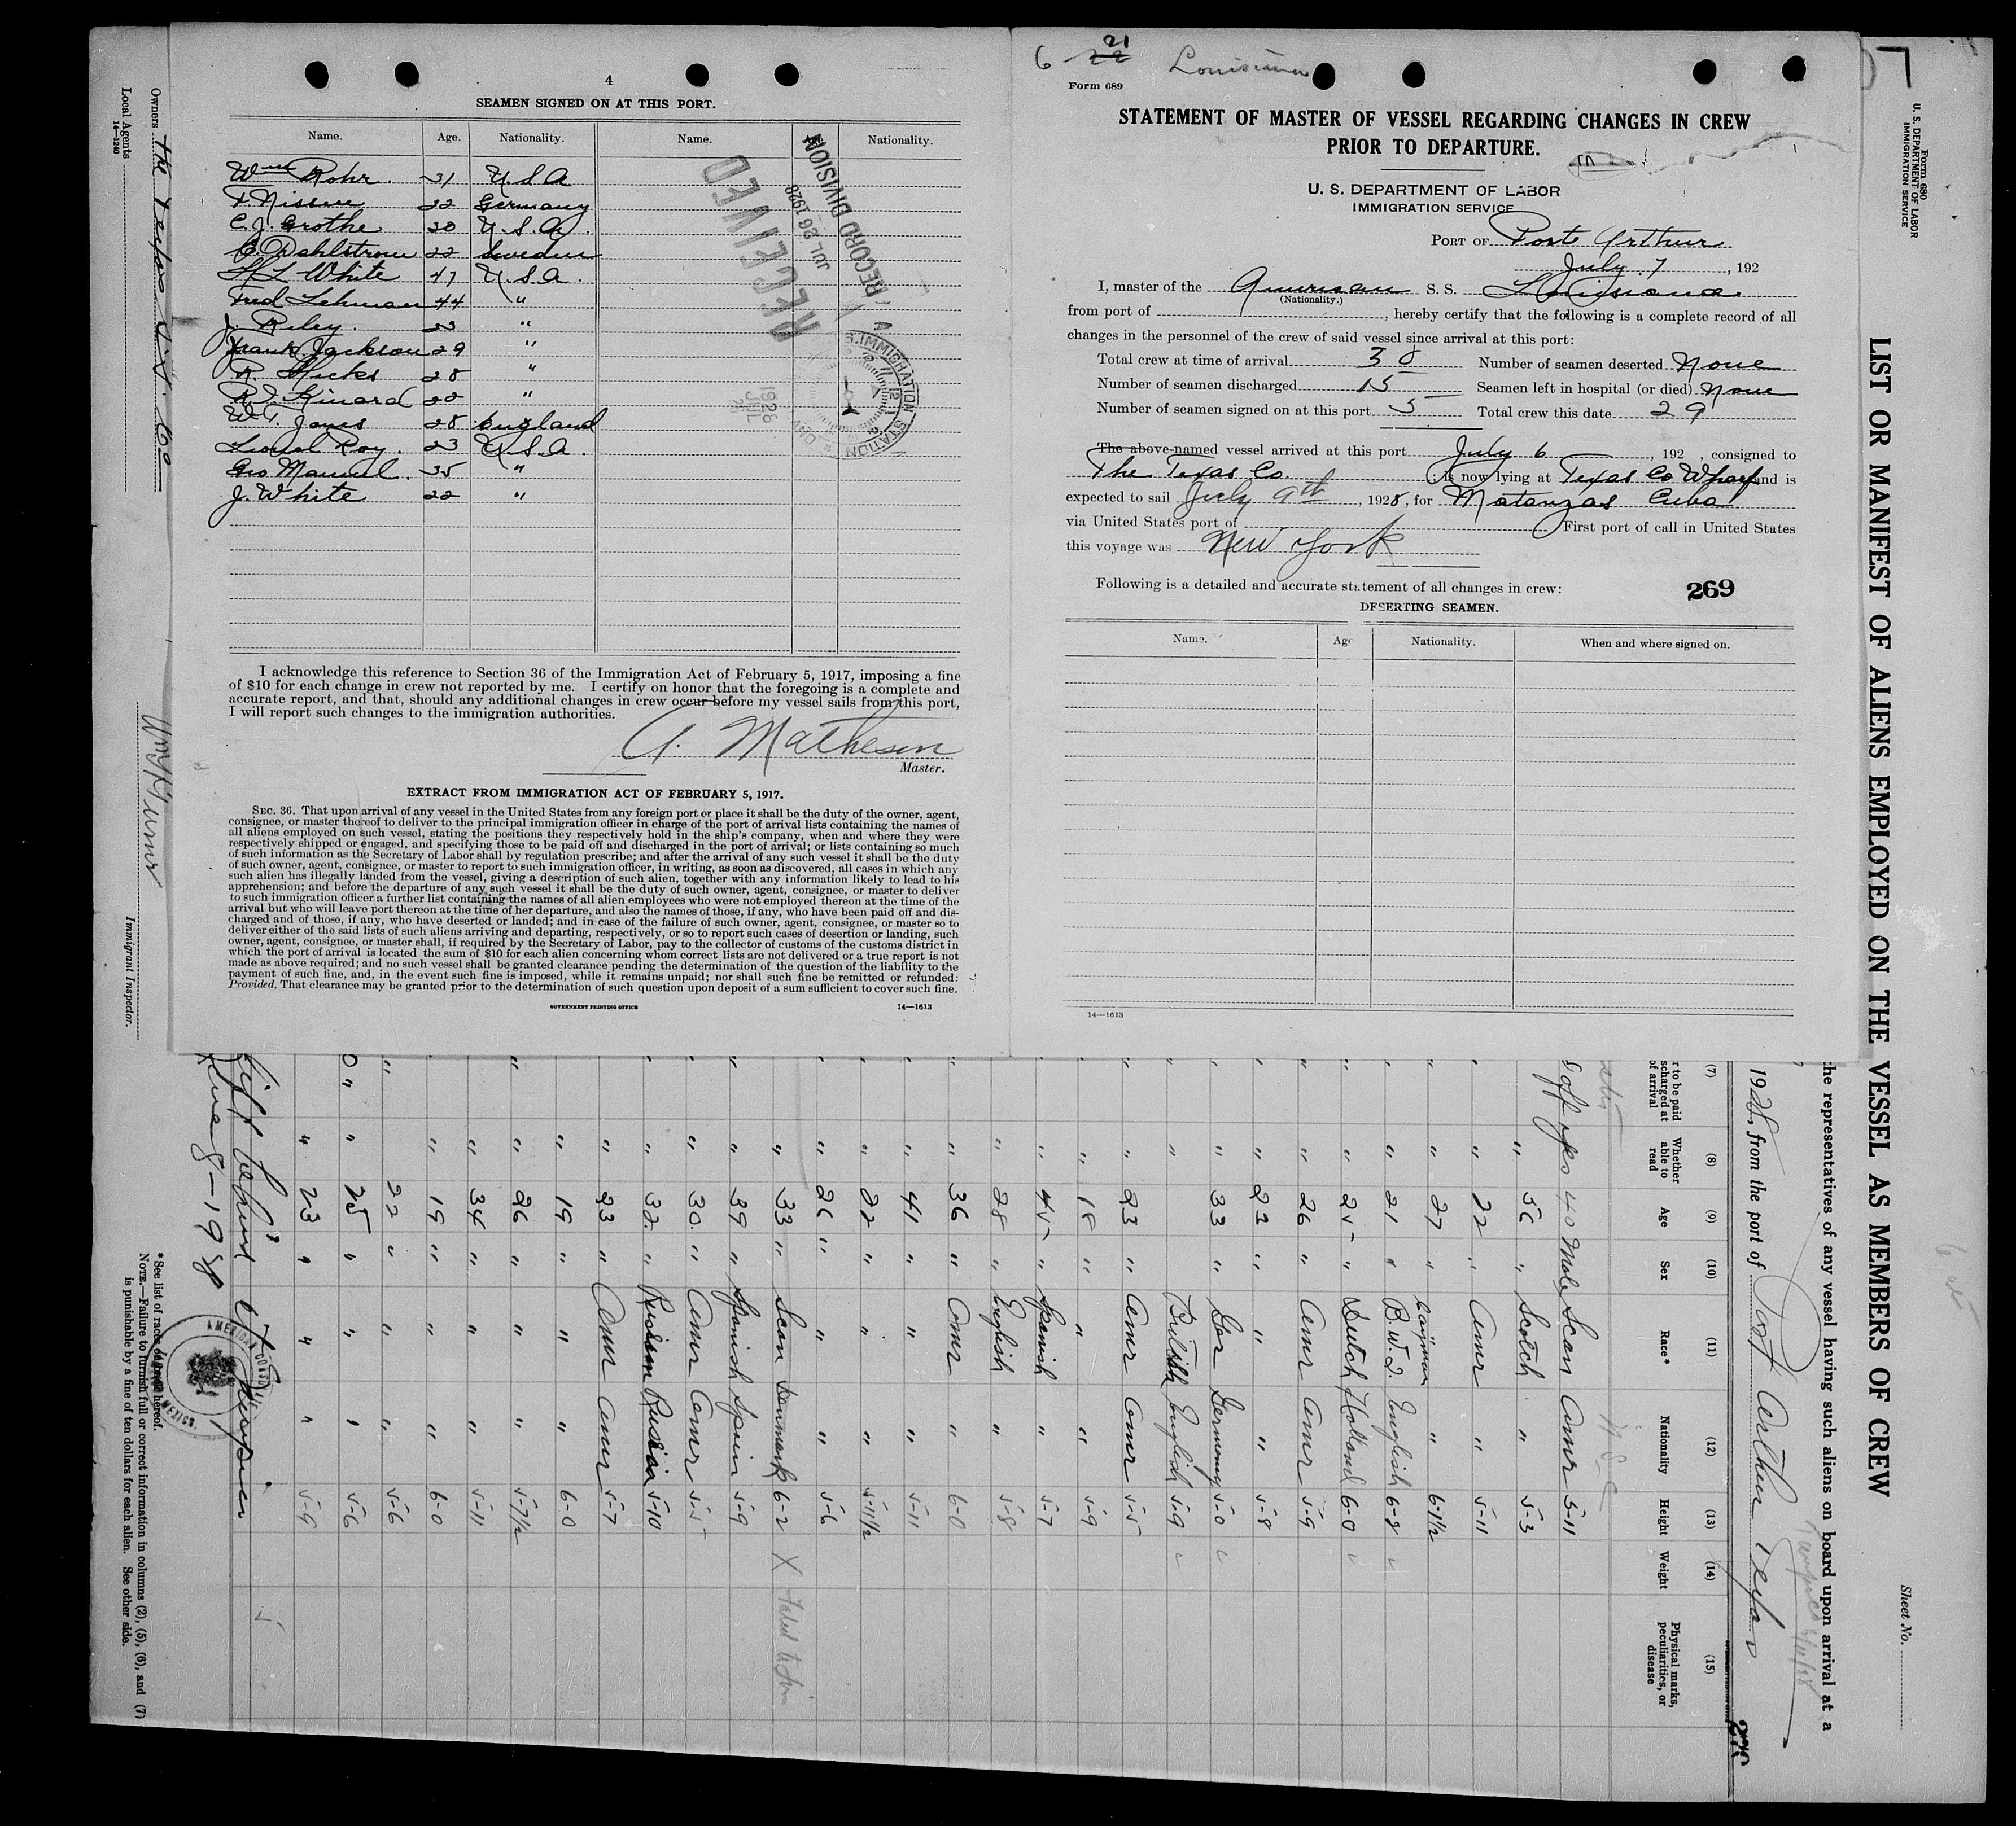 4
SEAMEN SIGNED ON AT THIS PORT.
Name. Age. Nationality. Name. Nationality.
Wm Rohr. 31 U S A
F. Nissen 22 Germany
C. J. Grothe 20 U. S. A.
C. Dahlstrom 22 Sweden
H L White 47 U. S. A.
Fred Lehman 44 "
J. Riley. 23 "
Frank Jackson 29 "
R. Hicks 28 "
R. J. Kinard 22 "
W. T. Jones 28 England
Lionel Roy. 23 U. S. A.
Geo Manuel. 35 "
J. White 22 "
RECEIVED
JUL 26 1928
RECORD DIVISION
1928
JUL
IMMIGRATION STATION
I acknowledge this reference to Section 36 of the Immigration Act of February 5, 1917, imposing a fine
of $10 for each change in crew not reported by me. I certify on honor that the foregoing is a complete and
accurate report, and that, should any additional changes in crew occur before my vessel sails from this port,
I will report such changes to the immigration authorities.
A. Matheson
Master.
EXTRACT FROM IMMIGRATION ACT OF FEBRUARY 5, 1917.
SEC. 36. That upon arrival of any vessel in the United States from any foreign port or place it shall be the duty of the owner, agent,
consignee, or master thereof to deliver to the principal immigration officer in charge of the port of arrival lists containing the names of
all aliens employed on such vessel, stating the positions they respectively hold in the ship's company, when and where they were
respectively shipped or engaged, and specifying those to be paid off and discharged in the port of arrival; or lists containing so much
of such information as the Secretary of Labor shall by regulation prescribe; and after the arrival of any such vessel it shall be the duty
of such owner, agent, consignee, or master to report to such immigration officer, in writing, as soon as discovered, all cases in which any
such alien has illegally landed from the vessel, giving a description of such alien, together with any information likely to lead to his
apprehension; and before the departure of any such vessel it shall be the duty of such owner, agent, consignee, or master to deliver
to such immigration officer a further list containing the names of all alien employees who were not employed thereon at the time of the
arrival but who will leave port thereon at the time of her departure, and also the names of those, if any, who have been paid off and dis-
charged and of those, if any, who have deserted or landed; and in case of the failure of such owner, agent, consignee, or master so to
deliver either of the said lists of such aliens arriving and departing, respectively, or so to report such cases of desertion or landing, such
owner, agent, consignee, or master shall, if required by the Secretary of Labor, pay to the collector of customs of the customs district in
which the port of arrival is located the sum of $10 for each alien concerning whom correct lists are not delivered or a true report is not
made as above required; and no such vessel shall be granted clearance pending the determination of the question of the liability to the
payment of such fine, and, in the event such fine is imposed, while it remains unpaid; nor shall such fine be remitted or refunded:
Provided, That clearance may be granted prior to the determination of such question upon deposit of a sum sufficient to cover such fine.
GOVERNMENT PRINTING OFFICE 14—1613
6 21 22 Louisiana
Form 689
STATEMENT OF MASTER OF VESSEL REGARDING CHANGES IN CREW
PRIOR TO DEPARTURE.
U. S. DEPARTMENT OF LABOR
IMMIGRATION SERVICE
PORT OF Port Arthur
July 7, 192
I, master of the American S. S. Louisiana
(Nationality.)
from port of , hereby certify that the following is a complete record of all
changes in the personnel of the crew of said vessel since arrival at this port:
Total crew at time of arrival 38 Number of seamen deserted None
Number of seamen discharged 15 Seamen left in hospital (or died) None
Number of seamen signed on at this port 5 Total crew this date 29
The above-named vessel arrived at this port July 6, 192 , consigned to
The Texas Co. is now lying at Texas Co Wharf and is
expected to sail July 9th, 1928, for Matanzas Cuba
via United States port of First port of call in United States
this voyage was New York
Following is a detailed and accurate statement of all changes in crew: 269
DESERTING SEAMEN.
Name. Age Nationality. When and where signed on.
14—1613
Form 680
U. S. DEPARTMENT OF LABOR
IMMIGRATION SERVICE
Sheet No.
LIST OR MANIFEST OF ALIENS EMPLOYED ON THE VESSEL AS MEMBERS OF CREW
the representatives of any vessel having such aliens on board upon arrival at a
Tampico
1928, from the port of Port Arthur Texas
(7) (8) (9) (10) (11) (12) (13) (14) (15)
r to be paid
scharged at
of arrival
Whether
able to
read
Age Sex Race* Nationality Height Weight
Physical marks,
peculiarities, or
disease
off yes 40 Male Scan Amr 5-11
" 56 " Scotch " 5-3
" 22 " Amr " 5-11
" 27 " Cayman " 6-1½
" 21 " B.W.I. English 6-2
" 25 " Dutch Holland 6-0
" 26 " Amr Amr 5-9
" 23 " " " 5-8
" 33 " Ger Germany 5-0
" British English 5-9
" 23 " Amr Amr 5-5
" 18 " " " 5-9
" 45 " Spanish " 5-7
" 28 " English " 5-8
" 36 " Amr " 6-0
" 41 " " " 5-11
" 22 " " " 5-11½
" 26 " " " 5-6
" 33 " Scan Denmark 6-2 X
" 39 " Spanish Spain 5-9
" 30 " Amr Amr 5-5
" 32 " Russian Russian 5-10
" 23 " Amr Amr 5-7
" 19 " " " 6-0
" 26 " " " 5-7½
" 34 " " " 5-11
" 19 " " " 6-0
" 22 " " " 5-6
" 25 " " " 5-6
" 23 " " " 5-9
June 8-1928
*See list of races on back hereof.
NOTE.—Failure to furnish full or correct information in columns (2), (5), (6), and (7)
is punishable by a fine of ten dollars for each alien. See other side.
Owners The Texas S.S. Co
Local Agents
14—1240
Immigrant Inspector.